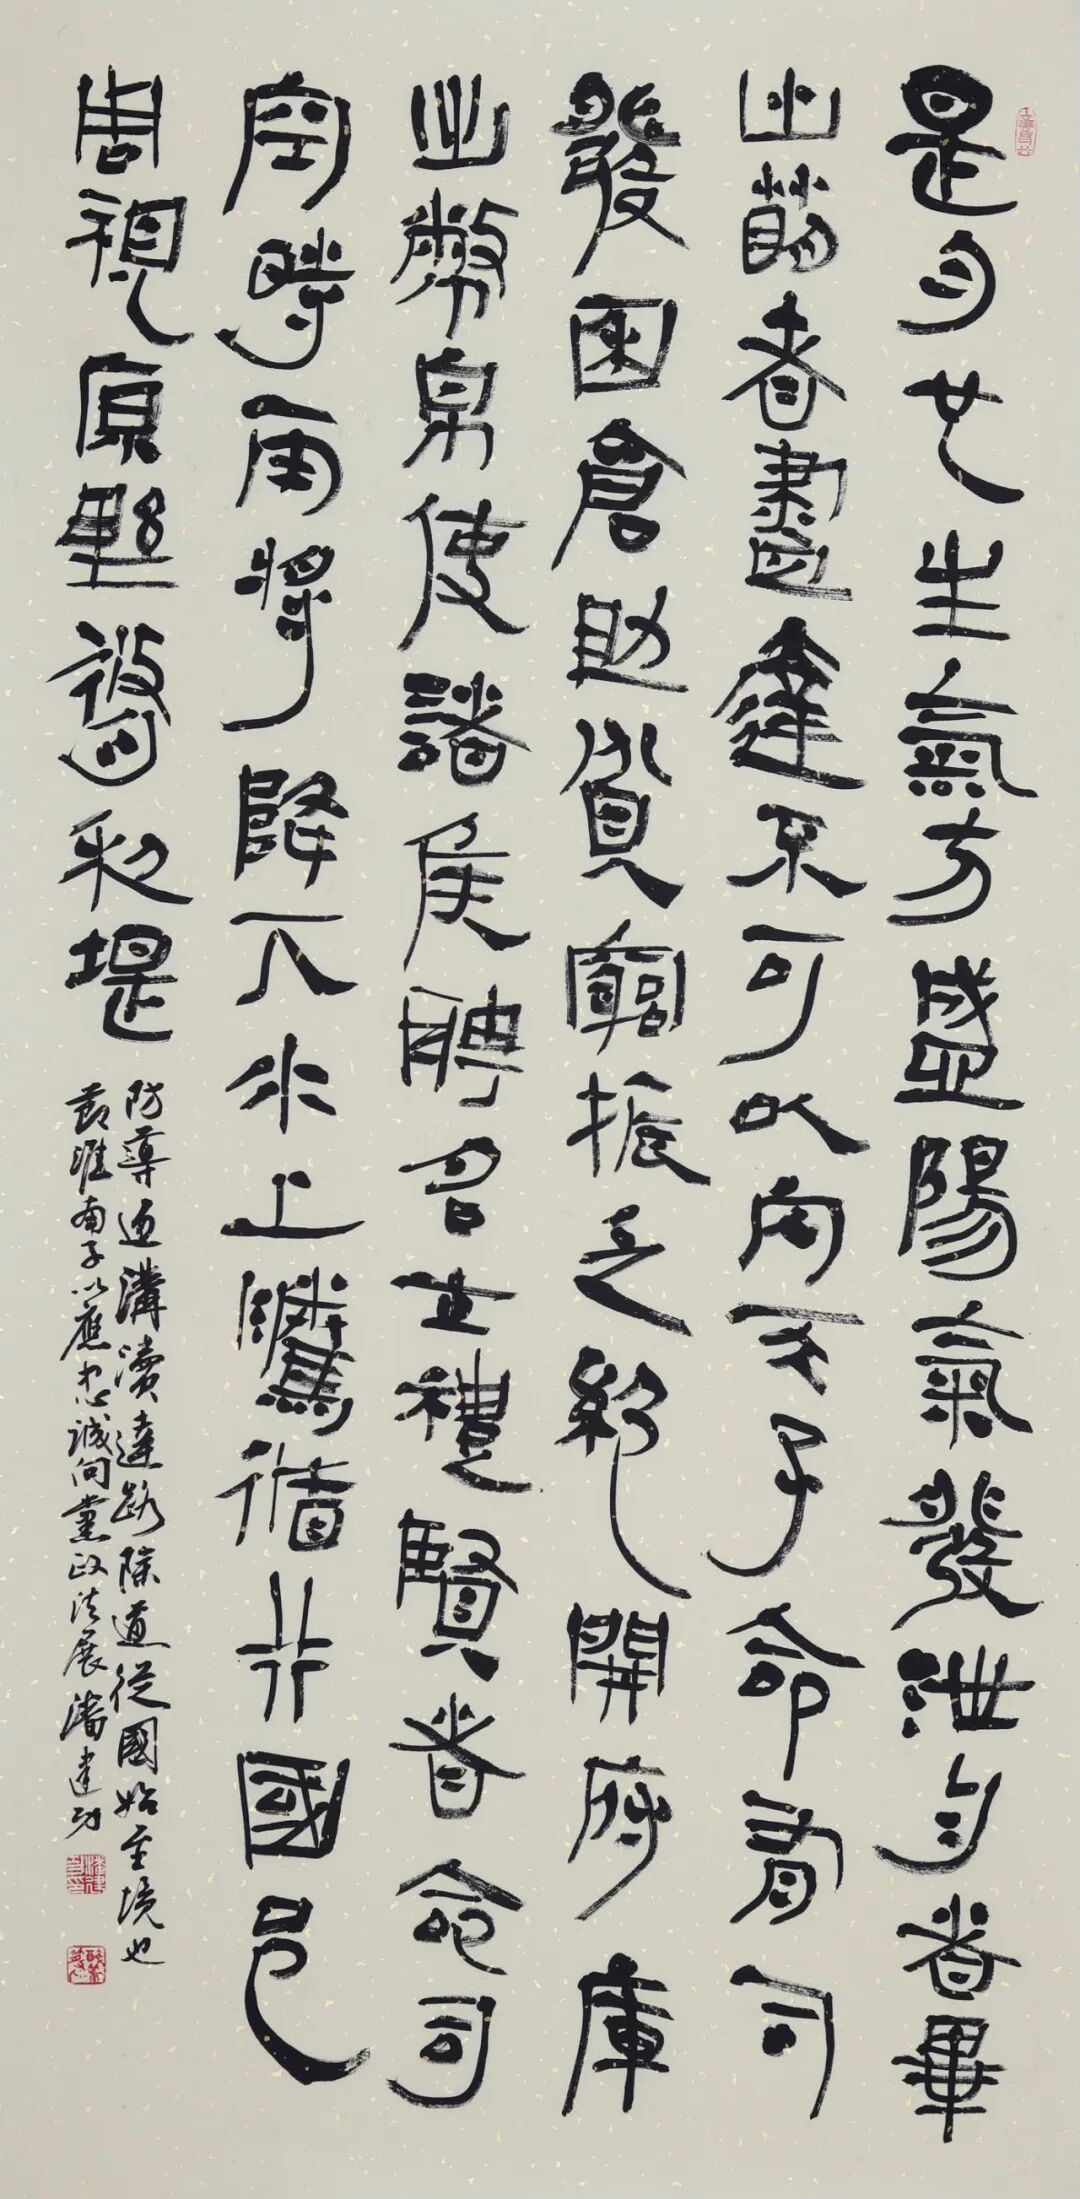 是月也生氣方盛陽氣發泄句者畢
出萌者盡達不可以内天子命有司
發囷倉助貧窮振乏絕開府庫
出幣帛使諸侯聘名士禮賢者命司
空時雨將降下水上騰循行國邑
周視原野脩利堤
防導通溝瀆達路除道從國始至境也
節淮南子以應忠誠向黨政法展潘建功